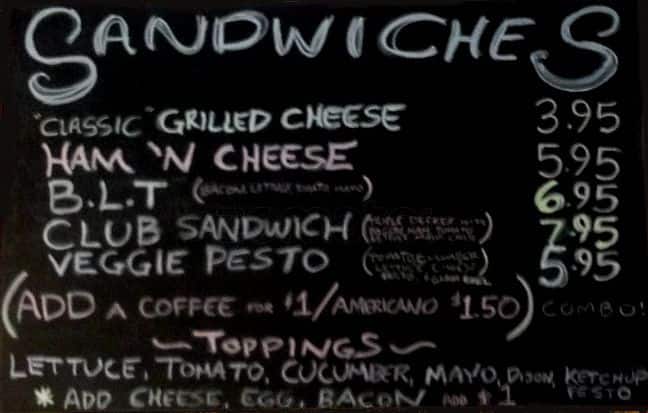 SANDWICHES
"CLASSIC" GRILLED CHEESE 3.95
HAM 'N CHEESE 5.95
B.L.T (BACON LETTUCE TOMATO MAYO) 6.95
CLUB SANDWICH (TRIPLE DECKER WITH 7.95
BACON HAM TOMATO
LETTUCE
VEGGIE PESTO (TOMATO CUCUMBER 5.95
LETTUCE
PESTO
(ADD A COFFEE FOR $1/AMERICANO $1.50) COMBO!
~TOPPINGS~
LETTUCE, TOMATO, CUCUMBER, MAYO, DIJON, KETCHUP
PESTO
* ADD CHEESE, EGG, BACON ADD $1